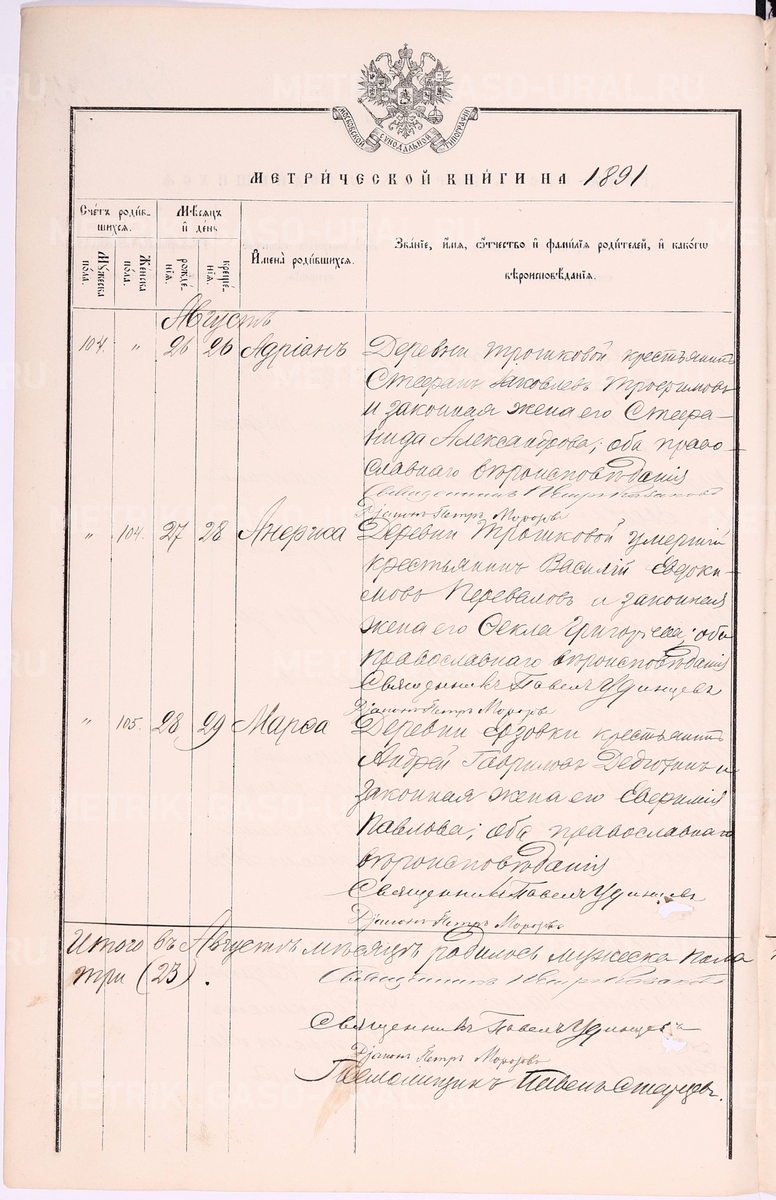 МОСКОВСКОЙ СѴНОДАЛЬНОЙ ТИПОГРАФІИ
МЕТРИ́ЧЕСКОЙ КНИ́ГИ НА 1891
Сче́тъ роди́в-
шихся.
Мѣсяцъ
и день
Му́жеска по́ла.
Же́нска по́ла.
рожде́-
нїя.
креще́-
нїя.
И҆мена̀ роди́вшихся.
Зва́нїе, и҆́мя, ѻ҆́тчество и҆ фами́лїя роди́телей, и҆ како́гѡ
вѣроисповѣ́данїя.
Августъ
104. „ 26 26 Адріанъ Деревни Трошковой крестьянинъ
Стефанъ Яковлевъ Трофимовъ
и законная жена его Стефа-
нида Александрова; оба право-
славнаго вѣроисповѣданія
Священникъ
Діаконъ Петръ Морозовъ
„ 104. 27 28 Анѳиса Деревни Трошковой умершій
крестьянинъ Василій Евдоки-
мовъ Переваловъ и законная
жена его Ѳекла Григорьева; оба
православнаго вѣроисповѣданія
Священникъ Павелъ Удинцевъ
Діаконъ Петръ Морозовъ
„ 105. 28 29 Марѳа Деревни крестьянинъ
Андрей Гавриловъ и
законная жена его Евфимія
Павлова; оба православнаго
вѣроисповѣданія
Священникъ Павелъ Удинцевъ
Діаконъ Петръ Морозовъ
Итого въ Августѣ мѣсяцѣ родилось мужеска пола
три (23).
Священникъ
Священникъ Павелъ Удинцевъ
Діаконъ Петръ Морозовъ
Псаломщикъ Старцевъ.
METRIKI.GASO-URAL.RU